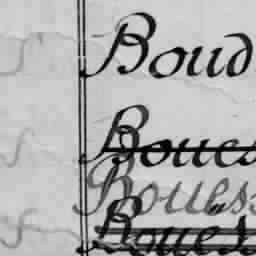 Boud
Boues
Bouess
Boues